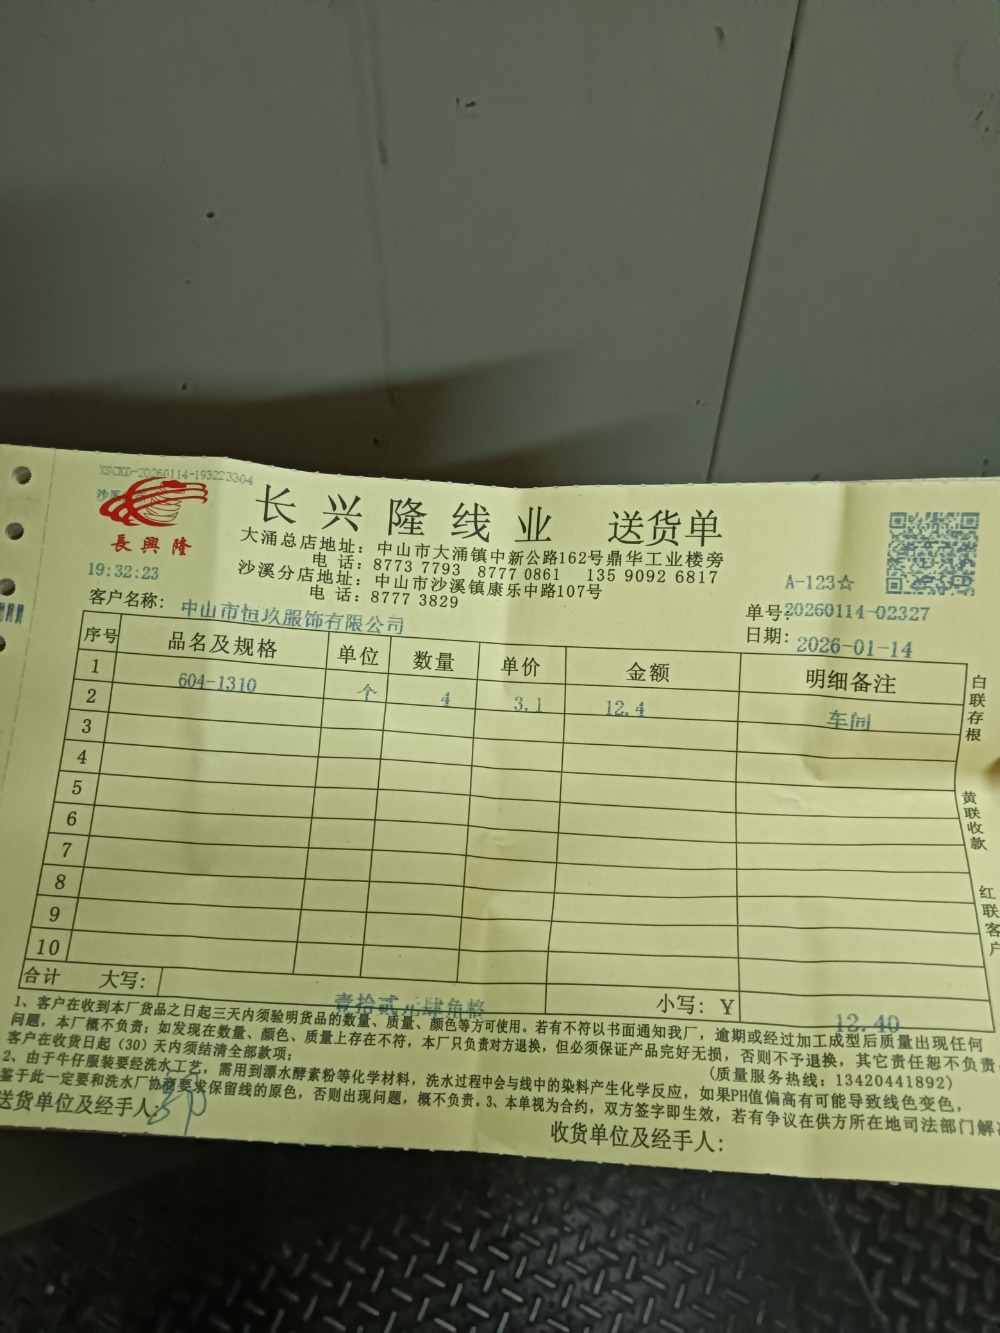 XSCKD-20260114-193223304
沙溪
長興隆
长兴隆线业 送货单
大涌总店地址：中山市大涌镇中新公路162号鼎华工业楼旁
电 话：8773 7793 8777 0861 135 9092 6817
沙溪分店地址：中山市沙溪镇康乐中路107号
电 话：8777 3829
19:32:23
A-123☆
客户名称：中山市恒玖服饰有限公司
单号：20260114-02327
日期：2026-01-14
序号 品名及规格 单位 数量 单价 金额 明细备注
1 604-1310 个 4 3.1 12.4 车间
2
3
4
5
6
7
8
9
10
白联存根
黄联收款
红联客户
合计 大写：壹拾贰元肆角整 小写：￥ 12.40
1、客户在收到本厂货品之日起三天内须验明货品的数量、质量、颜色等方可使用。若有不符以书面通知我厂，逾期或经过加工成型后质量出现任何
问题，本厂概不负责；如发现在数量、颜色、质量上存在不符，本厂只负责对方退换，但必须保证产品完好无损，否则不予退换，其它责任恕不负责
客户在收货日起（30）天内须结清全部款项；
(质量服务热线：13420441892)
2、由于牛仔服装要经洗水工艺，需用到漂水酵素粉等化学材料，洗水过程中会与线中的染料产生化学反应，如果PH值偏高有可能导致线色变色，
鉴于此一定要和洗水厂协商要求保留线的原色，否则出现问题，概不负责。3、本单视为合约，双方签字即生效，若有争议在供方所在地司法部门解决
送货单位及经手人：
收货单位及经手人：